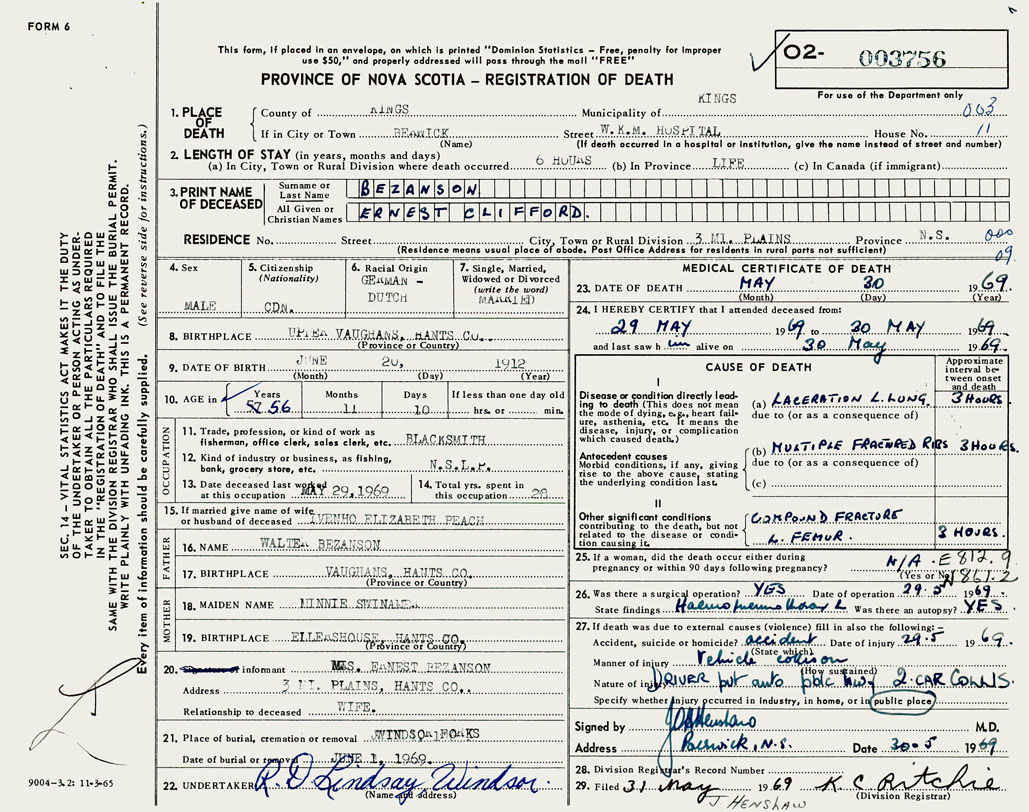 FORM 6
This form, if placed in an envelope, on which is printed "Dominion Statistics – Free, penalty for improper
use $50," and properly addressed will pass through the mail "FREE"
PROVINCE OF NOVA SCOTIA – REGISTRATION OF DEATH
O2- 003756
For use of the Department only
SEC. 14 – VITAL STATISTICS ACT MAKES IT THE DUTY
OF THE UNDERTAKER OR PERSON ACTING AS UNDER-
TAKER TO OBTAIN ALL THE PARTICULARS REQUIRED
IN THE "REGISTRATION OF DEATH" AND TO FILE THE
SAME WITH THE DIVISION REGISTRAR WHO SHALL ISSUE THE BURIAL PERMIT.
WRITE PLAINLY WITH UNFADING INK. THIS IS A PERMANENT RECORD.
Every item of information should be carefully supplied. (See reverse side for instructions.)
1. PLACE OF DEATH
County of KINGS Municipality of KINGS 003
If in City or Town BERWICK Street W.K.M. HOSPITAL House No. 11
(Name) (If death occurred in a hospital or institution, give the name instead of street and number)
2. LENGTH OF STAY (in years, months and days)
(a) In City, Town or Rural Division where death occurred 6 HOURS (b) In Province LIFE (c) In Canada (if immigrant)
3. PRINT NAME OF DECEASED
Surname or Last Name BEZANSON
All Given or Christian Names ERNEST CLIFFORD.
RESIDENCE No. Street City, Town or Rural Division 3 MI. PLAINS Province N.S. 000
(Residence means usual place of abode. Post Office Address for residents in rural parts not sufficient) 09
4. Sex MALE
5. Citizenship (Nationality) CDN.
6. Racial Origin GERMAN - DUTCH
7. Single, Married, Widowed or Divorced (write the word) MARRIED
8. BIRTHPLACE UPPER VAUGHANS, HANTS CO.
(Province or Country)
9. DATE OF BIRTH JUNE 20, 1912
(Month) (Day) (Year)
10. AGE in Years 56 Months 11 Days 10 If less than one day old hrs. or min.
OCCUPATION
11. Trade, profession, or kind of work as fisherman, office clerk, sales clerk, etc. BLACKSMITH
12. Kind of industry or business, as fishing, bank, grocery store, etc. N.S.L.P.
13. Date deceased last worked at this occupation MAY 29, 1969
14. Total yrs. spent in this occupation 28
15. If married give name of wife or husband of deceased IVENHO ELIZABETH PEACH
FATHER
16. NAME WALTER BEZANSON
17. BIRTHPLACE VAUGHANS, HANTS CO.
(Province or Country)
MOTHER
18. MAIDEN NAME MINNIE
19. BIRTHPLACE ELLERSHOUSE, HANTS CO.
(Province or Country)
20. informant MRS. ERNEST BEZANSON
Address 3 MI. PLAINS, HANTS CO..
Relationship to deceased WIFE.
21. Place of burial, cremation or removal WINDSOR FORKS
Date of burial or removal JUNE 1, 1969.
22. UNDERTAKER R. D Lindsay, Windsor.
(Name and address)
MEDICAL CERTIFICATE OF DEATH
23. DATE OF DEATH MAY 30 1969.
(Month) (Day) (Year)
24. I HEREBY CERTIFY that I attended deceased from:
29 MAY 1969 to 30 MAY 1969
and last saw him alive on 30 May 1969.
CAUSE OF DEATH
Approximate interval between onset and death
I
Disease or condition directly leading to death (This does not mean the mode of dying, e.g., heart failure, asthenia, etc. It means the disease, injury, or complication which caused death.)
(a) LACERATION L. LUNG. 3 HOURS
due to (or as a consequence of)
Antecedent causes
Morbid conditions, if any, giving rise to the above cause, stating the underlying condition last.
(b) MULTIPLE FRACTURED RIBS 3 HOURS.
due to (or as a consequence of)
(c)
II
Other significant conditions contributing to the death, but not related to the disease or condition causing it.
COMPOUND FRACTURE
L. FEMUR. 3 HOURS.
25. If a woman, did the death occur either during pregnancy or within 90 days following pregnancy? N/A
(Yes or No)
E812.9
N861.2
26. Was there a surgical operation? YES Date of operation 29.5 1969.
State findings Haemopneumothorax L Was there an autopsy? YES
27. If death was due to external causes (violence) fill in also the following:–
Accident, suicide or homicide? accident Date of injury 29.5 1969.
(State which)
Manner of injury Vehicle collision
(How sustained)
Nature of injury DRIVER pvt auto pblc hwy 2 CAR COLLNS.
Specify whether injury occurred in industry, in home, or in public place
Signed by J Henshaw M.D.
Address Berwick, N.S. Date 30-5 1969
28. Division Registrar's Record Number
29. Filed 31 May 1969 K C Ritchie
(Division Registrar)
J HENSHAW
9004-3.2: 11-3-65